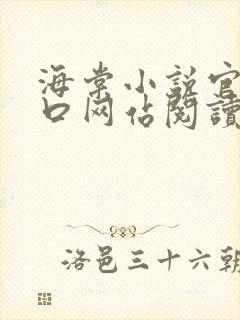 海棠小説官
口网估閱讀
洛邑三十六朝